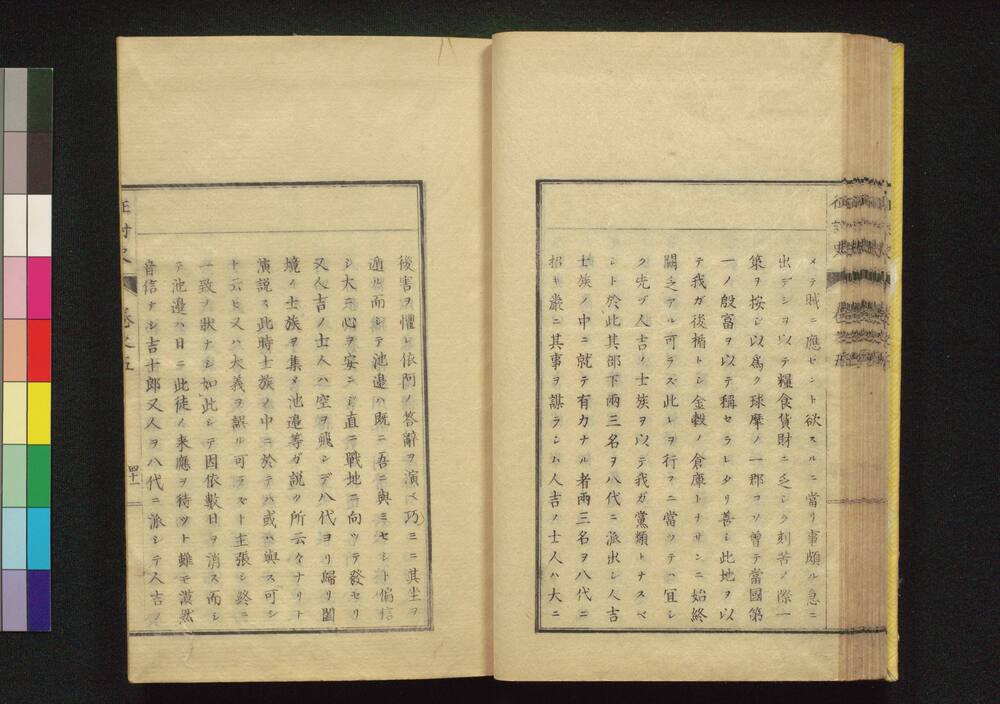 メテ賊ニ應セント欲スルニ當リ事頗ル急ニ
出デシヲ以テ糧食貨財ニ乏シク刻苦ノ際一
策ヲ按シ以爲ク球摩ノ一郡コソ曽テ當國第
一ノ殷富ヲ以テ稱セラレタリ善シ此地ヲ以
テ我ガ後楯トシ金穀ノ倉庫トナサンニ始終
闕乏アル可ラズ此レヲ行フニ當ツテハ宜シ
ク先ヅ人吉ノ士族ヲ以テ我ガ黨類トナスベ
シト於此其部下兩三名ヲ八代ニ派出シ人吉
士族ノ中ニ就テ有力ナル者兩三名ヲ八代ニ
招キ嚴ニ其事ヲ謀ラシム人吉ノ士人ハ大ニ
後害ヲ懼レ依阿ノ答辭ヲ演ベ巧ミニ其坐ヲ
遁ル而シテ池邉ハ既ニ吾ニ與ミセシト偏信
シ大ニ心ヲ安ンシ直ニ戰地ニ向ツテ發セリ
又人吉ノ士人ハ空ヲ飛シデ八代ヨリ歸リ闔
境ノ士族ヲ集メ池邉等ガ説ク所云々ナリト
演説ス此時士族ノ中ニ於テハ或ハ與ス可シ
ト云ヒ又ハ大義ヲ誤ル可ラズト主張シ終ニ
一致ノ狀ナシ如此シテ因依數日ヲ消ス而シ
テ池邉ハ日ニ此徒ノ来應ヲ待ツト雖モ漠然
音信ナシ吉十郎又人ヲ八代ニ派シテ人吉ノ
征討史
巻之五
四十一